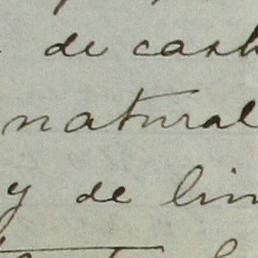 de cast
natural
y de lin